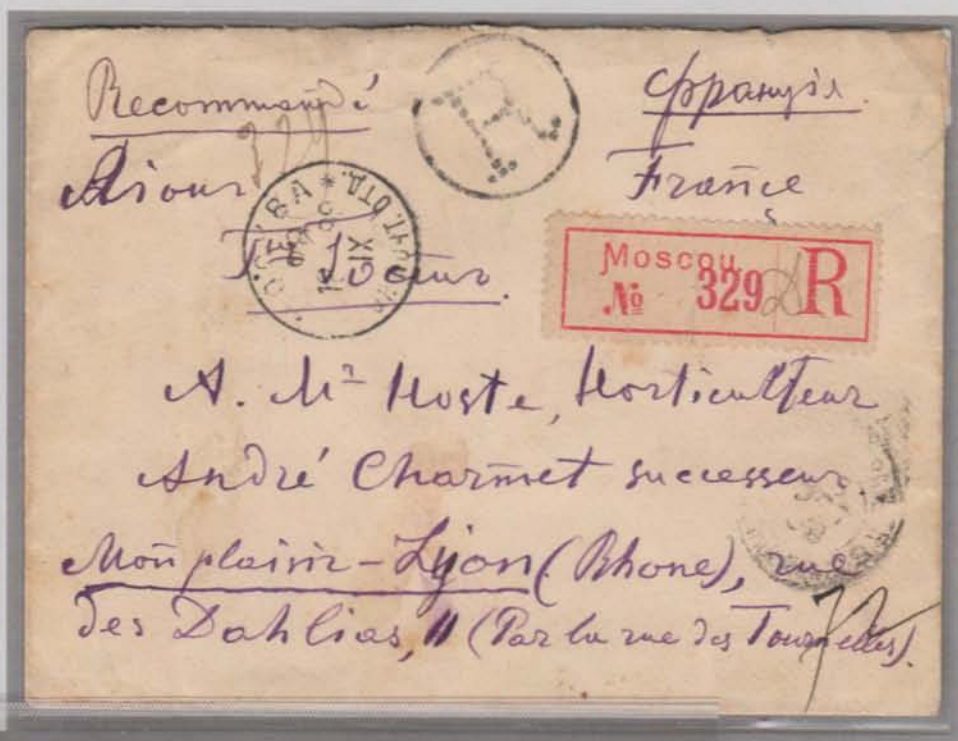 Recommandé
R
Франція.
France
329
Moscou
№ 329 R
A. Mr Hoste, Horticulteur
André Charmet successeur
Monplaisir-Lyon (Rhone), rue
des Dahlias, 11 (Par la rue des Tournelles).